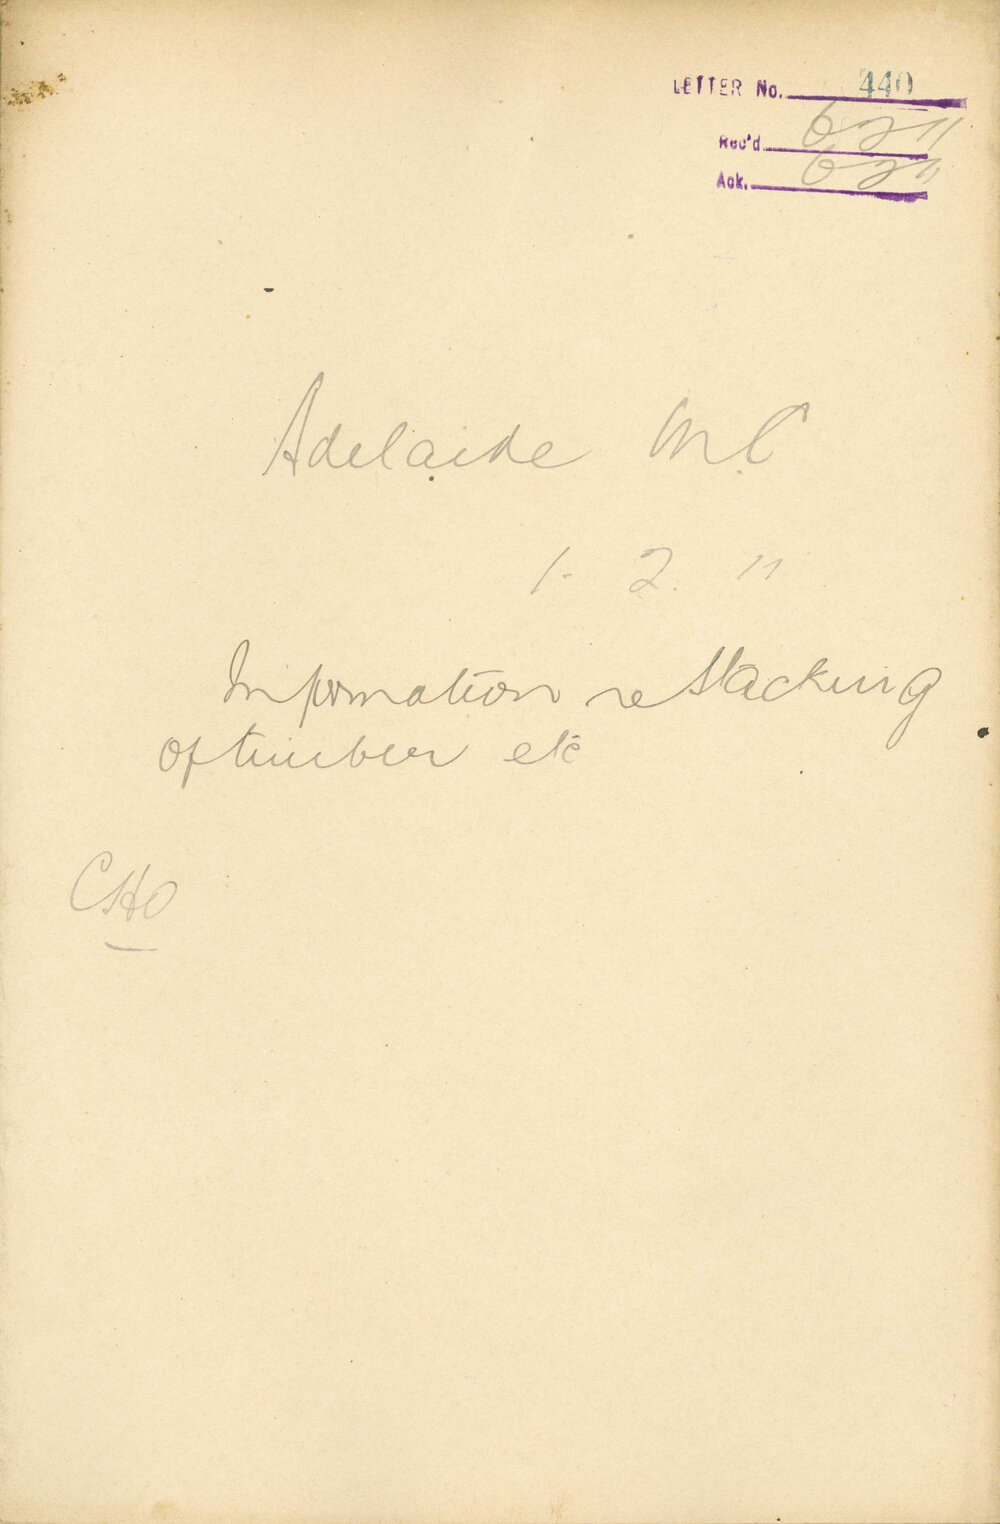 LETTER No. 440
Rec'd. 6 2 11
Ack. 6 2 11
Adelaide M.C
1. 2. 11
Information re Stacking
of timber etc
CHO